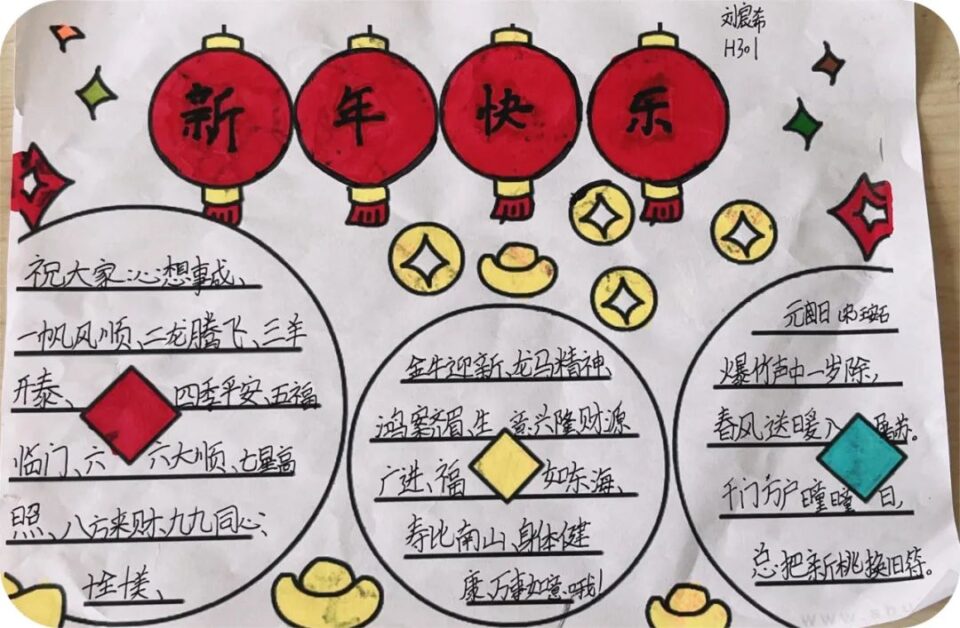 新年快乐
刘宸希
H301
祝大家心想事成、
一帆风顺、二龙腾飞、三羊
开泰、四季平安、五福
临门、六六大顺、七星高
照、八方来财、九九同心、
十全十美、
金牛迎新、龙马精神、
鸿案齐眉、生意兴隆财源
广进、福如东海、
寿比南山、身体健
康、万事如意哦！
元日
爆竹声中一岁除，
春风送暖入屠苏。
千门万户瞳瞳日，
总把新桃换旧符。